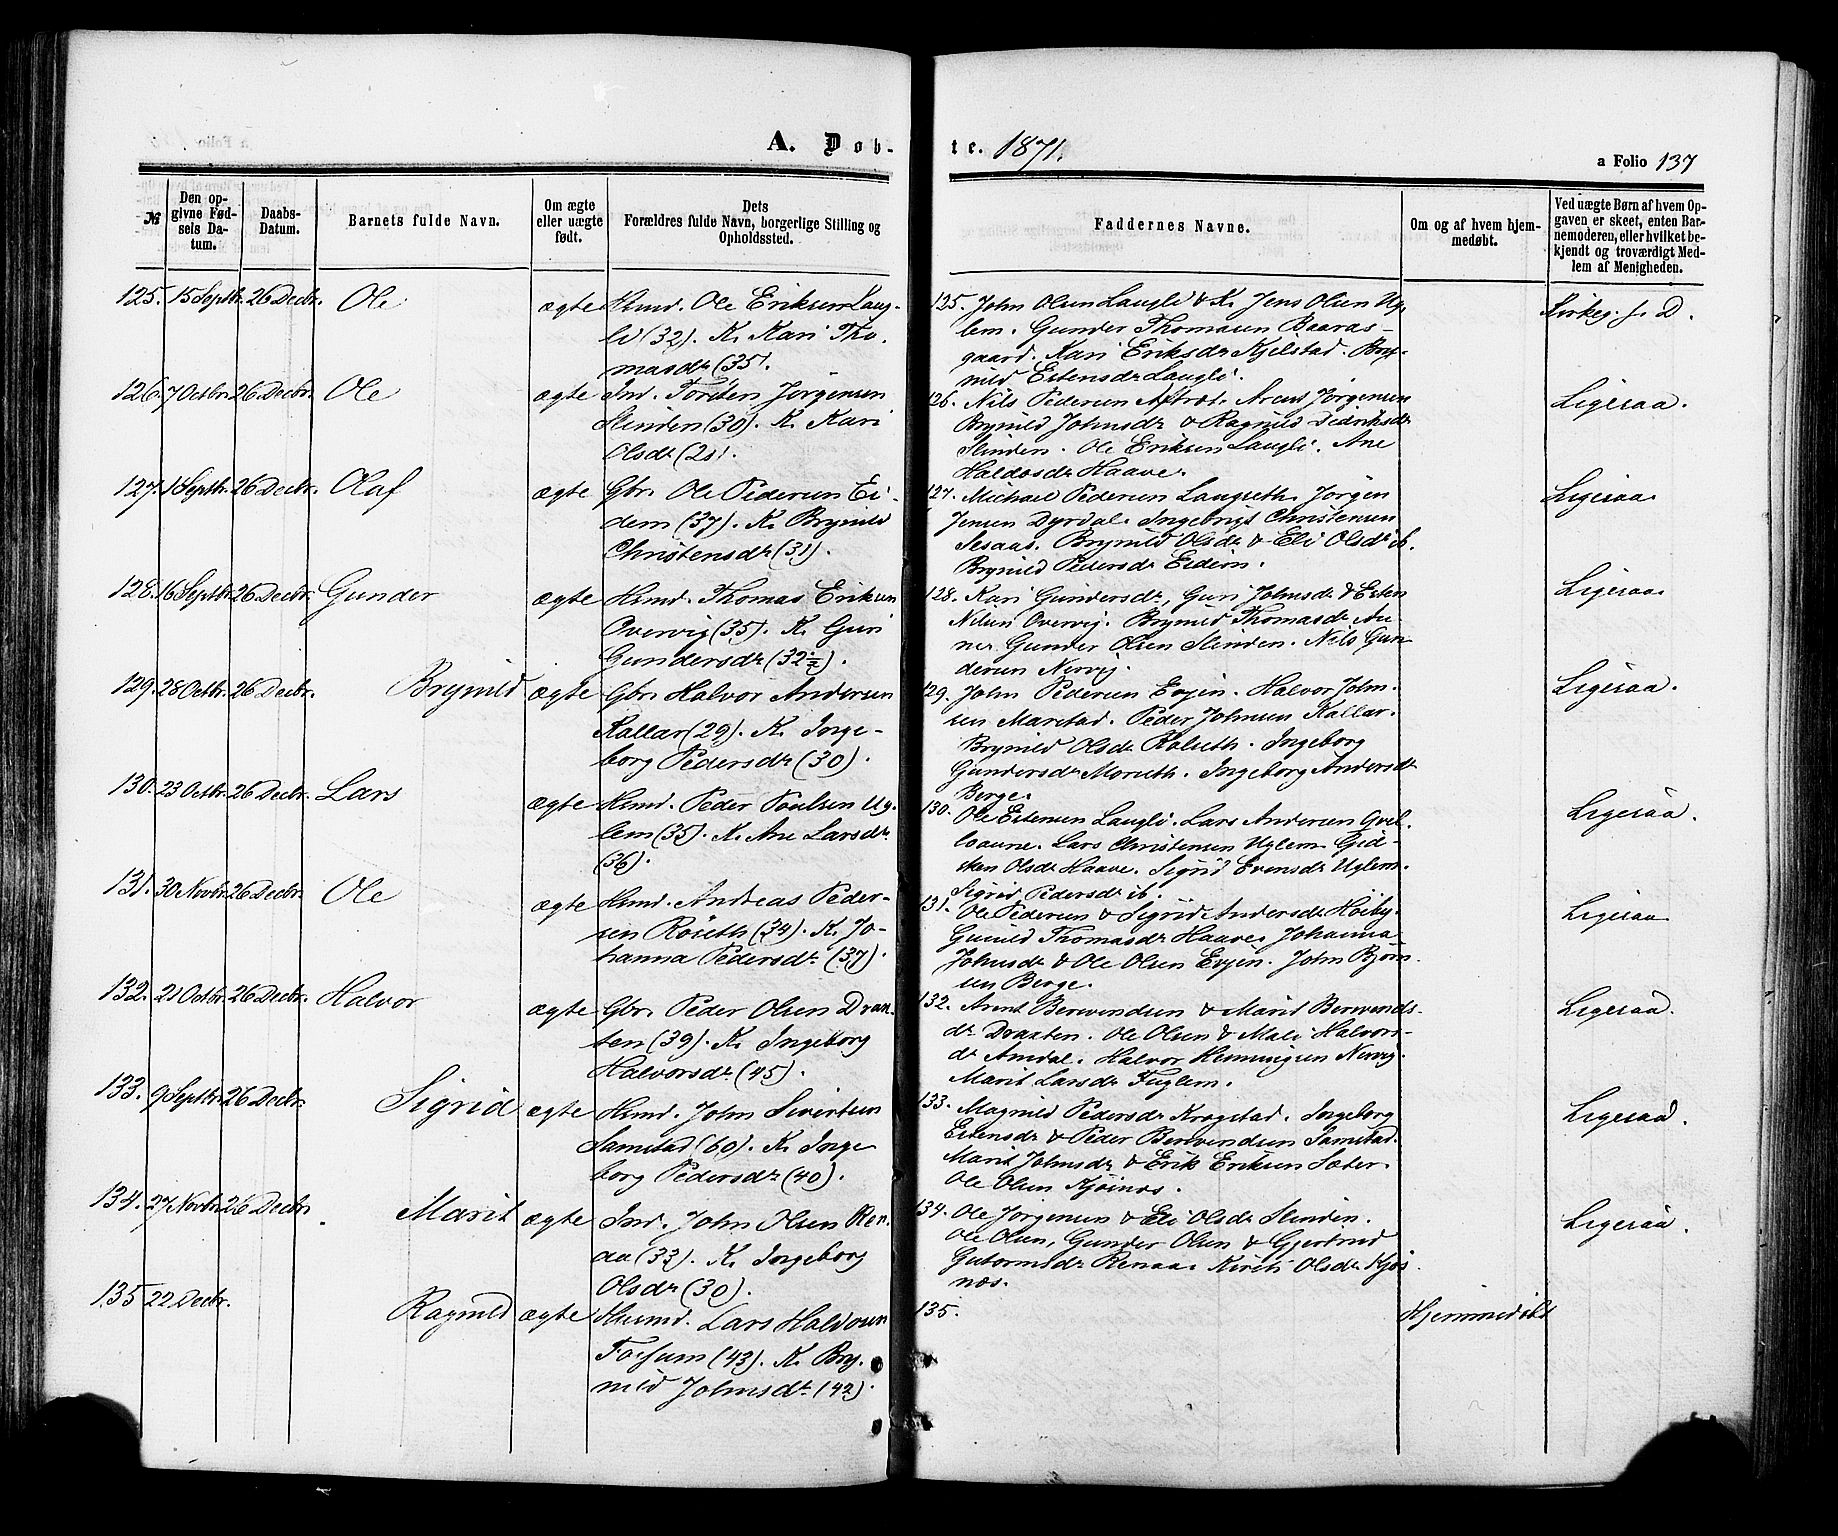 A. Døb-
te. 1871.
a Folio 137
№
Den op-
givne Fød-
sels Da-
tum.
Daabs-
Datum.
Barnets fulde Navn.
Om ægte
eller uægte
født.
Dets
Forældres fulde Navn, borgerlige Stilling og
Opholdssted.
Faddernes Navne.
Om og af hvem hjem-
medøbt.
Ved uægte Børn af hvem Op-
gaven er skeet, enten Bar-
nemoderen, eller hvilket be-
kjendt og troværdigt Med-
lem af Menigheden.
125. 15 Septbr. 26 Decbr. Ole ægte Hsmd. Ole Eriksen Laug-
li (32). K. Kari Tho-
masdr (35).
125. John Olsen Laugli & K. Jens Olsen Ug-
lem. Gunder Thomasen Baaras-
gaard. Kari Eriksdr Kjelstad. Bry-
nild Estensdr Laugli.
Kirkeg. f. D.
126. 7 Octbr. 26 Decbr. Ole ægte Ind. Torsten Jørgensen
Slinden (30). K. Kari
Olsdr (21).
126. Nils Pedersen Aftret. Arent Jörgensen
Brynild Johnsdr & Ragnild Didriksdr
Slinden. Ole Eriksen Laugli. Ane
Haldosdr Haave.
Ligesaa.
127. 1 Septbr. 26 Decbr. Olaf ægte Gbr. Ole Pedersen Ei-
dem (37). K. Brynild
Christensdr (31).
127. Michael Pedersen Langseth. Jörgen
Jensen Dyrdal. Ingebrigt Christensen
Sesaas. Brynild Olsdr & Eli Olsdr ib.
Brynild Pedersdr Eidem.
Ligesaa
128. 16 Septbr. 26 Decbr. Gunder ægte Hsmd. Thomas Eriksen
Overvig (35). K. Guri
Gundersdr (32½).
128. Kari Gundersdr, Guri Johnsdr & Esten
Nilsen Overvig. Brynild Thomasdr Au-
ne. Gunder Olsen Slinden. Nils Gun-
dersen Nervig.
Ligesaa
129. 28 Octbr. 26 Decbr. Brynild ægte Gbr. Halvor Andersen
Kallar (29). K. Inge-
borg Pedersdr (30).
129. John Pedersen Evjen. Halvor John-
sen Marstad. Peder Johnsen Kallar.
Brynild Olsdr Kalseth. Ingeborg
Gundersdr Morseth. Ingeborg Andersdr
Berge.
Ligesaa.
130. 23 Octbr. 26 Decbr. Lars ægte Hsmd. Peder Poulsen Ug-
lem (35). K. Ane Larsdr
(36).
130. Ole Estensen Laugli. Lars Andersen Qvel-
loaune. Lars Christensen Uglem. Gid-
sken Olsdr Haave. Sigrid Evensdr Uglem.
Sigrid Pedersdr ib.
Ligesaa.
131. 30 Novbr. 26 Decbr. Ole ægte Hsmd. Andreas Peder-
sen Röseth (34). K. Jo-
hanna Pedersdr (37).
131. Ole Pedersen & Sigrid Andersdr Höiby.
Gunild Thomasdr Haave. Johanna
Johnsdr & Ole Olsen Evjen. John Björn-
sen Berge.
Ligesaa
132. 21 Octbr. 26 Decbr. Halvor ægte Gbr. Peder Olsen Draa-
ten (39). K. Ingeborg
Halvorsdr (45).
132. Arent Berevendsen & Marit Berevends-
dr Draaten. Ole Olsen & Mali Halvors-
dr Amdal. Halvor Henningsen Nervig.
Marit Larsdr Fuglem.
Ligesaa.
133. 9 Septbr. 26 Decbr. Sigrid ægte Hsmd. John Sivertsen
Samstad (60). K. Inge
borg Pedersdr (40).
133. Magnild Pedersdr Krogstad. Ingeborg
Estensdr & Peder Berevendsen Samstad.
Marit Johnsdr & Erik Eriksen Sæter.
Ole Olsen Kjösnæs.
Ligesaa.
134. 27 Novbr. 26 Decbr. Marit ægte Ind. John Olsen Ren-
aa (33). K. Ingeborg
Olsdr (30).
134. Ole Jörgensen & Eli Olsdr Slinden.
Ole Olsen, Gunder Olsen & Gjertrud
Gutormsdr Renaa. Kirsti Olsdr Kjös-
næs.
Ligesaa.
135 22 Decbr. Ragnild ægte Husmd. Lars Haldosen
Fossum (43). K. Bry-
nild Johnsdr (42).
135.
Hjemmedöbt